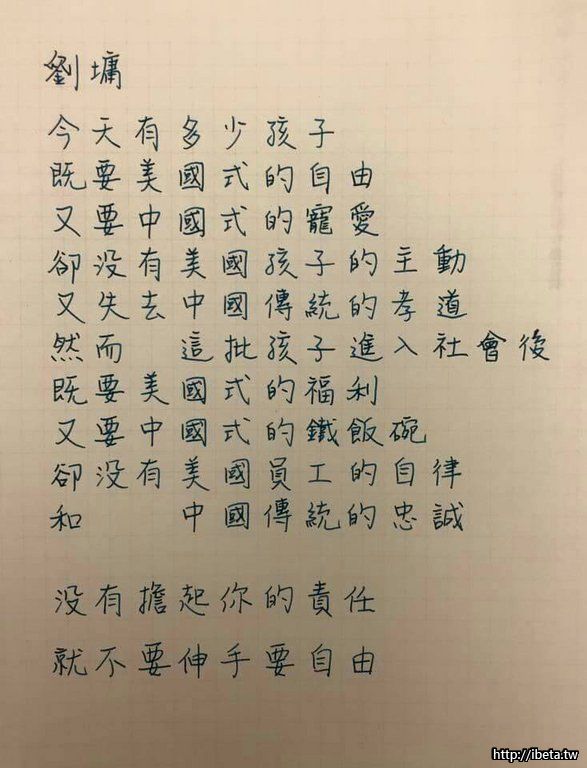 劉墉
今天有多少孩子
既要美國式的自由
又要中國式的寵愛
卻没有美國孩子的主動
又失去中國傳統的孝道
然而 這批孩子進入社會後
既要美國式的福利
又要中國式的鐵飯碗
卻没有美國員工的自律
和 中國傳統的忠誠
没有擔起你的責任
就不要伸手要自由
http://ibeta.tw